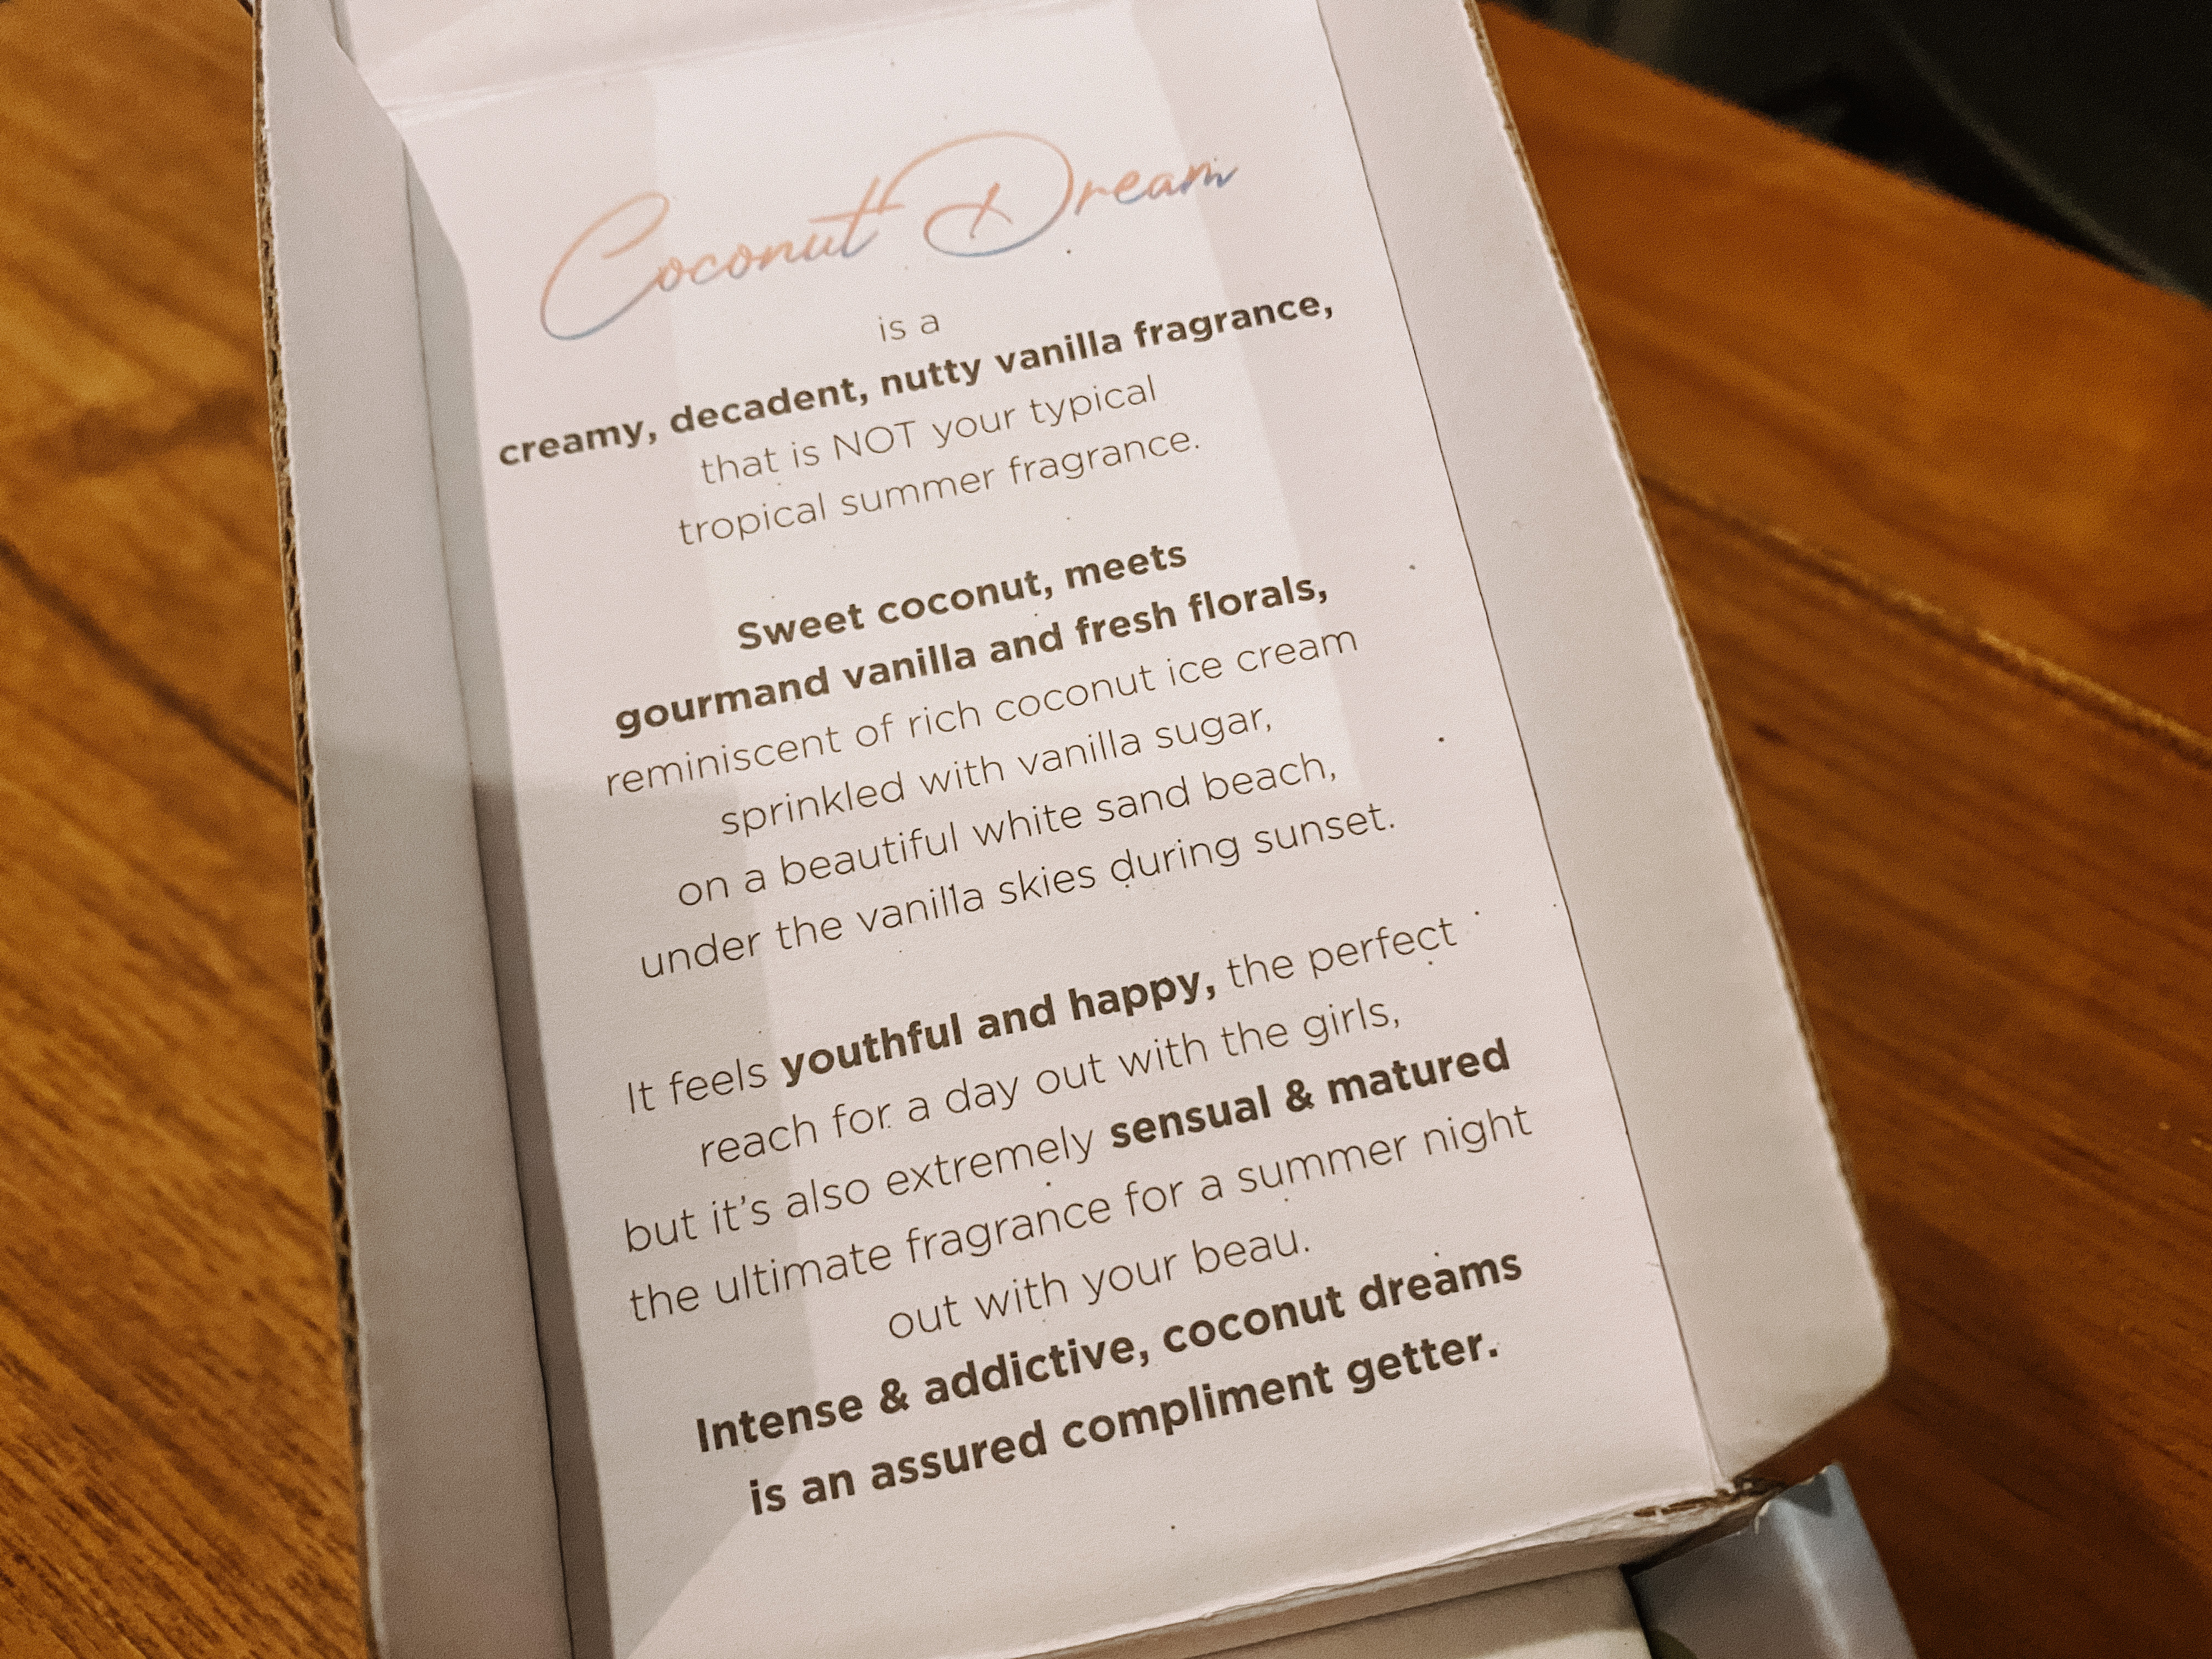 Coconut Dream
is a
creamy, decadent, nutty vanilla fragrance,
that is NOT your typical
tropical summer fragrance.
Sweet coconut, meets
gourmand vanilla and fresh florals,
reminiscent of rich coconut ice cream
sprinkled with vanilla sugar,
on a beautiful white sand beach,
under the vanilla skies during sunset.
It feels youthful and happy, the perfect
reach for a day out with the girls,
but it's also extremely sensual & matured
the ultimate fragrance for a summer night
out with your beau.
Intense & addictive, coconut dreams
is an assured compliment getter.